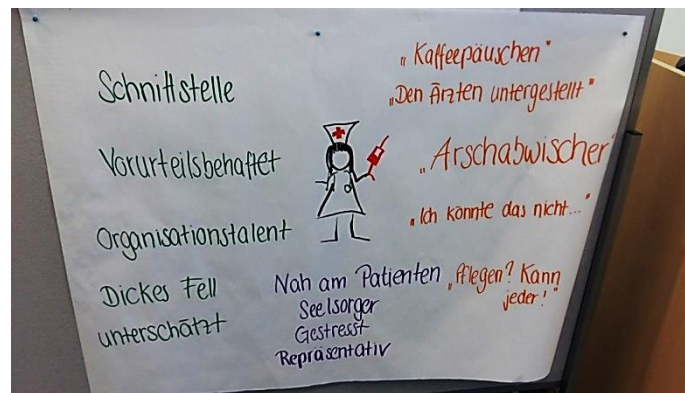 Schnittstelle
Vorurteilsbehaftet
Organisationstalent
Dickes Fell
unterschätzt
Nah am Patienten
Seelsorger
Gestresst
Repräsentativ
„Kaffeepäuschen"
„Den Ärzten untergestellt"
„Arschabwischer"
„Ich könnte das nicht..."
„Pflegen? Kann
jeder!"